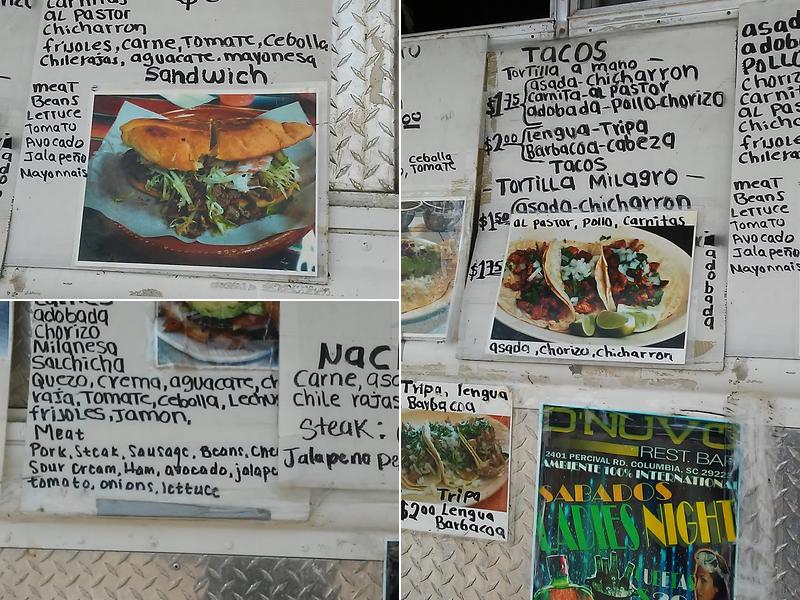 carnitas
al pastor
chicharron
frijoles, carne, Tomate, Cebolla
Chilerajas, aguacate. mayonesa
Sandwich
meaT
Beans
Lettuce
Tomato
Avocado
Jalapeño
Mayonnais
Cebolla
o, Tomate
TACOS
Tortilla a mano
$1.75 asada-chicharron
Carnita-al Pastor
adobada-Pollo-chorizo
$2.00 Lengua-Tripa
Barbacoa-cabeza
TACOS
Tortilla Milagro
$1.50 asada-chicharron
al Pastor, Pollo, Carnitas
$1.75
adobada
asada, chorizo, chicharron
asad
adob
Pollo
Choriz
Carnit
al Pas
Chicha
frijole
Chilera
meaT
Beans
Lettuce
Tomato
Avocado
Jalapeño
Mayonnais
adobada
Chorizo
Milanesa
Salchicha
Quezo, Crema, aguacate, ch
raja, Tomate, Cebolla, Lechu
frijoles, Jamon,
Meat
Pork, Steak, Sausage, Beans, Che
Sour Cream, Ham, avocado, jalape
tomato, onions, lettuce
NAC
Carne, asa
Chile rajas
Steak:
Jalapeno pe
Tripa, lengua
Barbacoa
Tripa
$2.00 Lengua
Barbacoa
REST. BAR
2401 PERCIVAL RD. COLUMBIA, SC 29223
AMBIENTE 100% INTERNATIONAL
SABADOS
LADIES NIGHT